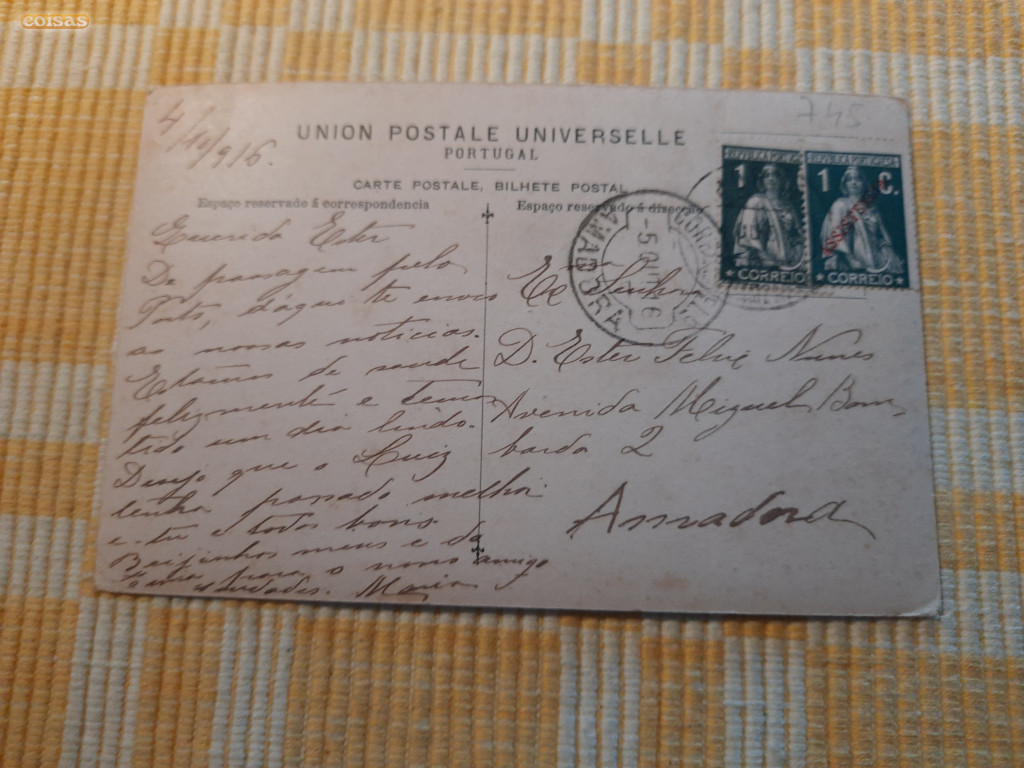 coisas
745
4/10/916.
UNION POSTALE UNIVERSELLE
PORTUGAL
CARTE POSTALE, BILHETE POSTAL
Espaço reservado á correspondencia
Espaço reservado á direcção
REPUBLICA PORTUGUESA
1 C.
CORREIO
1
CORREIO
AMADORA
-5 OUT 16
Querida Ester
De passagem pelo
Porto, daqui te envio
as nossas noticias.
Estamos de saude
felizmente e temos
tido um dia lindo.
Desejo que o Luiz
tenha passado melhor
e tu e todos bons.
Beijinhos meus e da
para o nosso amigo
saudades. Maria
Ex Senhra
D. Ester Felix Nunes
Avenida Miguel Bom
barda 2
Amadora